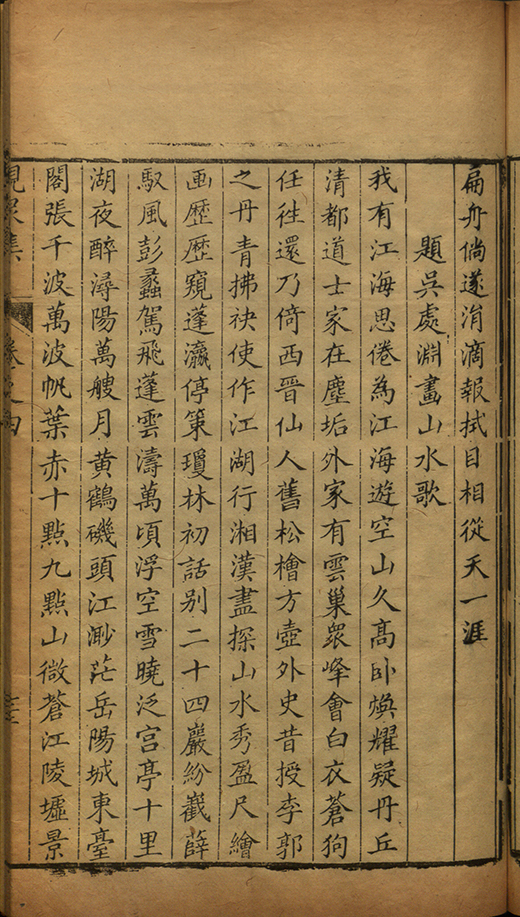 扁舟倘遂涓滴報拭目相從天一涯
題吳處淵畫山水歌
我有江海思倦為江海遊空山久高卧煥耀疑丹丘
清都道士家在塵垢外家有雲巢眾峰會白衣蒼狗
任徃還乃倚西晉仙人舊松檜方壺外史昔授李郭
之丹青拂袂使作江湖行湘漢盡探山水秀盈尺繪
画歷歷窺蓬瀛停策瓊林初話别二十四巖紛巀薛
馭風彭蠡駕飛蓬雲濤萬頃浮空雪曉泛宫亭十里
湖夜醉潯陽萬艘月黄鶴磯頭江渺茫岳陽城東臺
閣張千波萬波帆葉赤十點九點山微蒼江陵墟景
峴泉集
卷之四